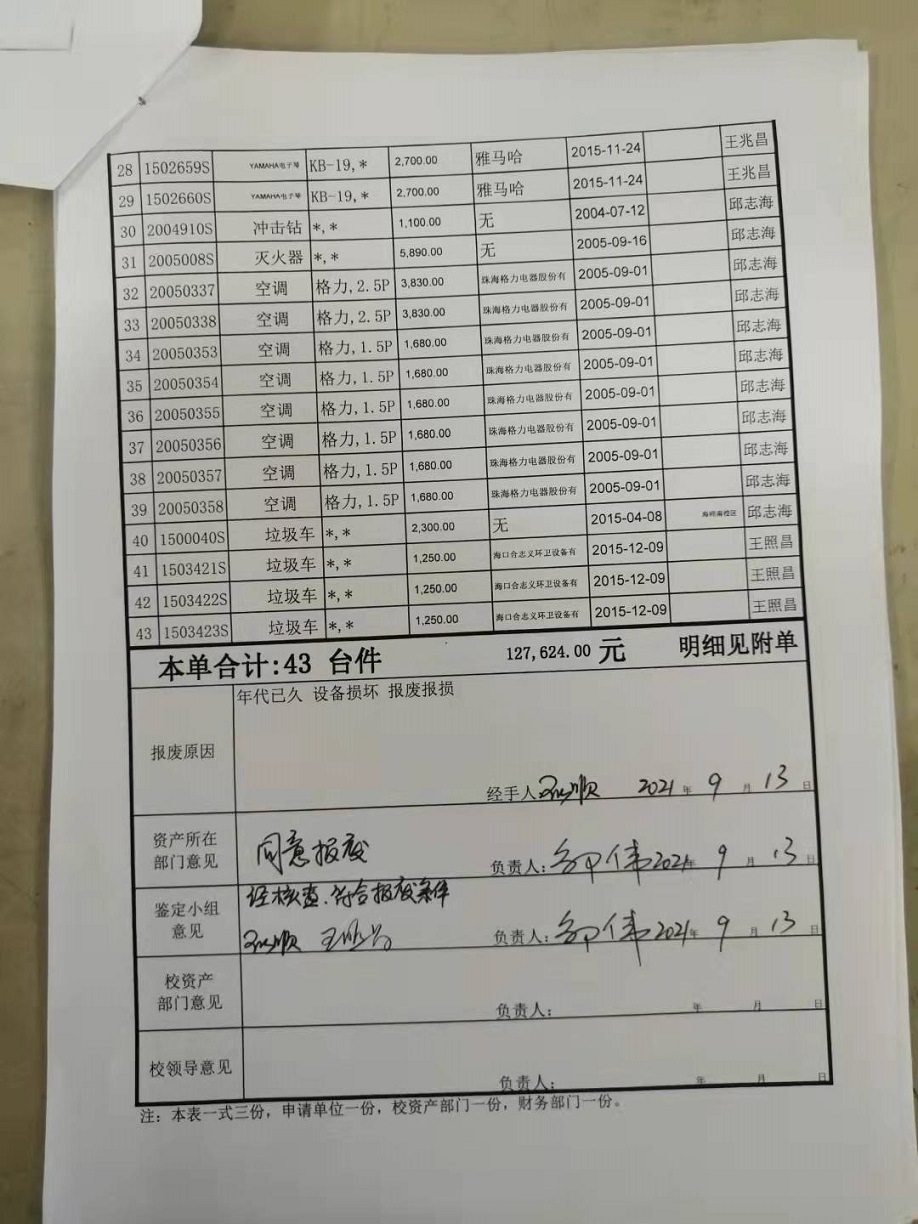 28 1502659S YAMAHA电子琴 KB-19,* 2,700.00 雅马哈 2015-11-24 王兆昌
29 1502660S YAMAHA电子琴 KB-19,* 2,700.00 雅马哈 2015-11-24 王兆昌
30 2004910S 冲击钻 *,* 1,100.00 无 2004-07-12 邱志海
31 2005008S 灭火器 *,* 5,890.00 无 2005-09-16 邱志海
32 20050337 空调 格力,2.5P 3,830.00 珠海格力电器股份有 2005-09-01 邱志海
33 20050338 空调 格力,2.5P 3,830.00 珠海格力电器股份有 2005-09-01 邱志海
34 20050353 空调 格力,1.5P 1,680.00 珠海格力电器股份有 2005-09-01 邱志海
35 20050354 空调 格力,1.5P 1,680.00 珠海格力电器股份有 2005-09-01 邱志海
36 20050355 空调 格力,1.5P 1,680.00 珠海格力电器股份有 2005-09-01 邱志海
37 20050356 空调 格力,1.5P 1,680.00 珠海格力电器股份有 2005-09-01 邱志海
38 20050357 空调 格力,1.5P 1,680.00 珠海格力电器股份有 2005-09-01 邱志海
39 20050358 空调 格力,1.5P 1,680.00 珠海格力电器股份有 2005-09-01 邱志海
40 1500040S 垃圾车 *,* 2,300.00 无 2015-04-08 邱志海
41 1503421S 垃圾车 *,* 1,250.00 海口合志义环卫设备有 2015-12-09 王照昌
42 1503422S 垃圾车 *,* 1,250.00 海口合志义环卫设备有 2015-12-09 王照昌
43 1503423S 垃圾车 *,* 1,250.00 海口合志义环卫设备有 2015-12-09 王照昌
本单合计:43 台件 127,624.00 元 明细见附单
报废原因
年代已久 设备损坏 报废报损
经手人 2021年 9月 13日
资产所在
部门意见
同意报废
负责人: 2021年 9月 13日
鉴定小组
意见
经核查.符合报废条件
负责人: 2021年 9月 13日
校资产
部门意见
负责人: 年 月 日
校领导意见
负责人: 年 月 日
注: 本表一式三份, 申请单位一份, 校资产部门一份, 财务部门一份。